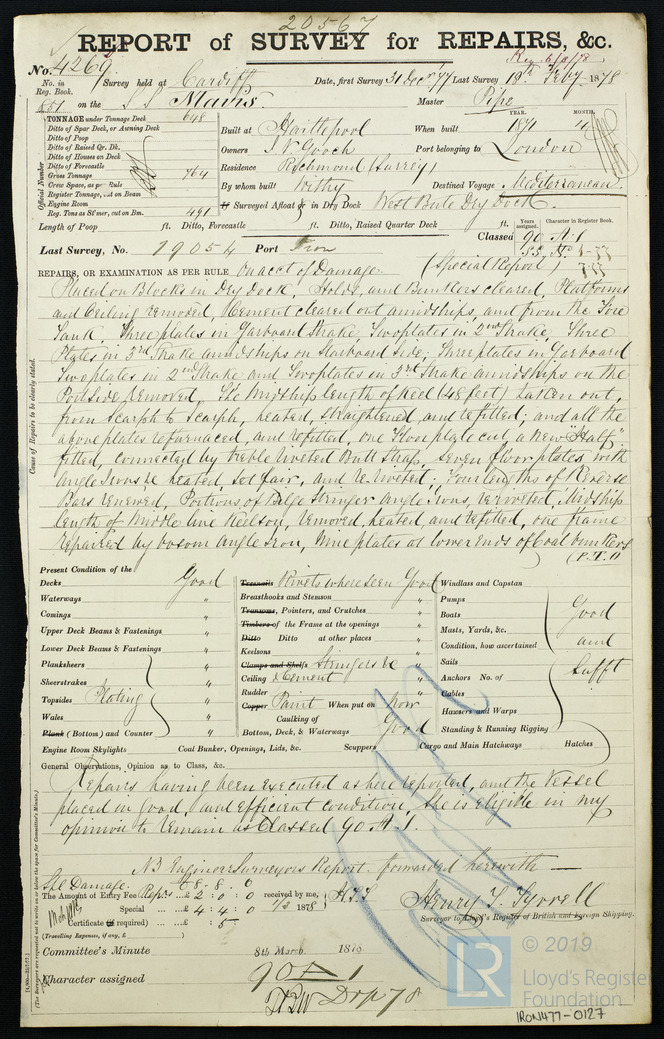 20567
REPORT of SURVEY for REPAIRS, &c.
No. 4269.
No. in Reg. Book.
Survey held at Cardiff
Date, first Survey 31 Decr 77 Last Survey 18th Feby 1878
551 on the S S Mavis
Master Pipe
TONNAGE under Tonnage Deck 648
Ditto of Spar Deck, or Awning Deck
Ditto of Poop
Ditto of Raised Qr. Dk.
Ditto of Houses on Deck
Ditto of Forecastle
Gross Tonnage 764
Crew Space, as per Rule
Register Tonnage, cut on Beam
Engine Room
Reg. Tons as St'mer, cut on Bm. 491
Official Number
YEAR. MONTH.
Built at Hartlepool
When built 1871 4
Owners J. V. Gooch
Port belonging to London
Residence Richmond (Surrey)
By whom built Withy
Destined Voyage Mediterranean.
If Surveyed Afloat or in Dry Dock West Bute Dry Dock.
Length of Poop ft. Ditto, Forecastle ft. Ditto, Raised Quarter Deck ft.
Years assigned. Character in Register Book.
Classed 90 A.1
Last Survey, No. 19054 Port Iron
REPAIRS, OR EXAMINATION AS PER RULE On acct of Damage. (Special Report)
Placed on Blocks in Dry Dock, Holds, and Bunkers cleared, Platforms
and Ceiling removed, Cement cleared out amidships, and from the Fore
Tank. Three plates in Garboard Strake, Two plates in 2nd Strake, Three
Plates in 3rd Strake amidships on Starboard Side, Three plates in Garboard
Two plates in 2nd Strake and Two plates in 3rd Strake amidships on the
Port Side removed, The Midship length of Keel (48 feet) taken out,
from Scarph to Scarph, heated, straightened and refitted; and all the
above plates refurnaced, and refitted, one Floor plate cut, a new "Half"
fitted, connected by treble riveted Butt Strap, Seven floor plates with
Angle Irons &c heated, set fair, and re-riveted; Four lengths of Reverse
Bars renewed, Portions of Bilge Stringer Angle Irons, reriveted, Midship
length of Middle line Keelson, removed, heated, and refitted, one frame
repaired by bosom Angle Iron, Nine plates at lower ends of Coal bunkers
(P.T.O)
Cause of Repairs to be clearly stated.
Present Condition of the
Decks Good
Waterways "
Comings "
Upper Deck Beams & Fastenings "
Lower Deck Beams & Fastenings "
Planksheers "
Sheerstrakes "
Topsides Plating "
Wales "
Plank (Bottom) and Counter "
Treenails Rivets where seen Good
Breasthooks and Stemson "
Transoms, Pointers, and Crutches "
Timbers of the Frame at the openings "
Ditto Ditto at other places "
Keelsons "
Clamps and Shelfs Stringers &c "
Ceiling & Cement "
Rudder "
Copper Paint When put on Now
Caulking of
Bottom, Deck, & Waterways Good
Windlass and Capstan
Pumps
Boats
Masts, Yards, &c.
Condition, how ascertained
Sails
Anchors No. of
Cables
Hawsers and Warps
Standing & Running Rigging
Good
and
Sufft
Engine Room Skylights Coal Bunker, Openings, Lids, &c. Scuppers Cargo and Main Hatchways Hatches
General Observations, Opinion as to Class, &c.
Repairs having been executed as here reported, and the Vessel
placed in good, and efficient condition, she is eligible in my
opinion to remain as Classed 90 A.1.
NB Engineer Surveyors Report forwarded herewith
Spl Damage. £8 - 8. 0
The Amount of Entry Fee Repr. £ 2 : 0 : 0 received by me, H.T.S
Special £ 4 : 4 : 0 1/3 1878
Certificate (if required) : 5
(Travelling Expenses, if any, £ )
Henry T. Tyrrell
Surveyor to Lloyd's Register of British and Foreign Shipping.
Committee's Minute 8th March 1878
Character assigned 90 A 1
Drp 78
(The Surveyors are requested not to write on or below the space for Committee's Minute.)
LR
© 2019
Lloyd's Register
Foundation
IRON477-0127